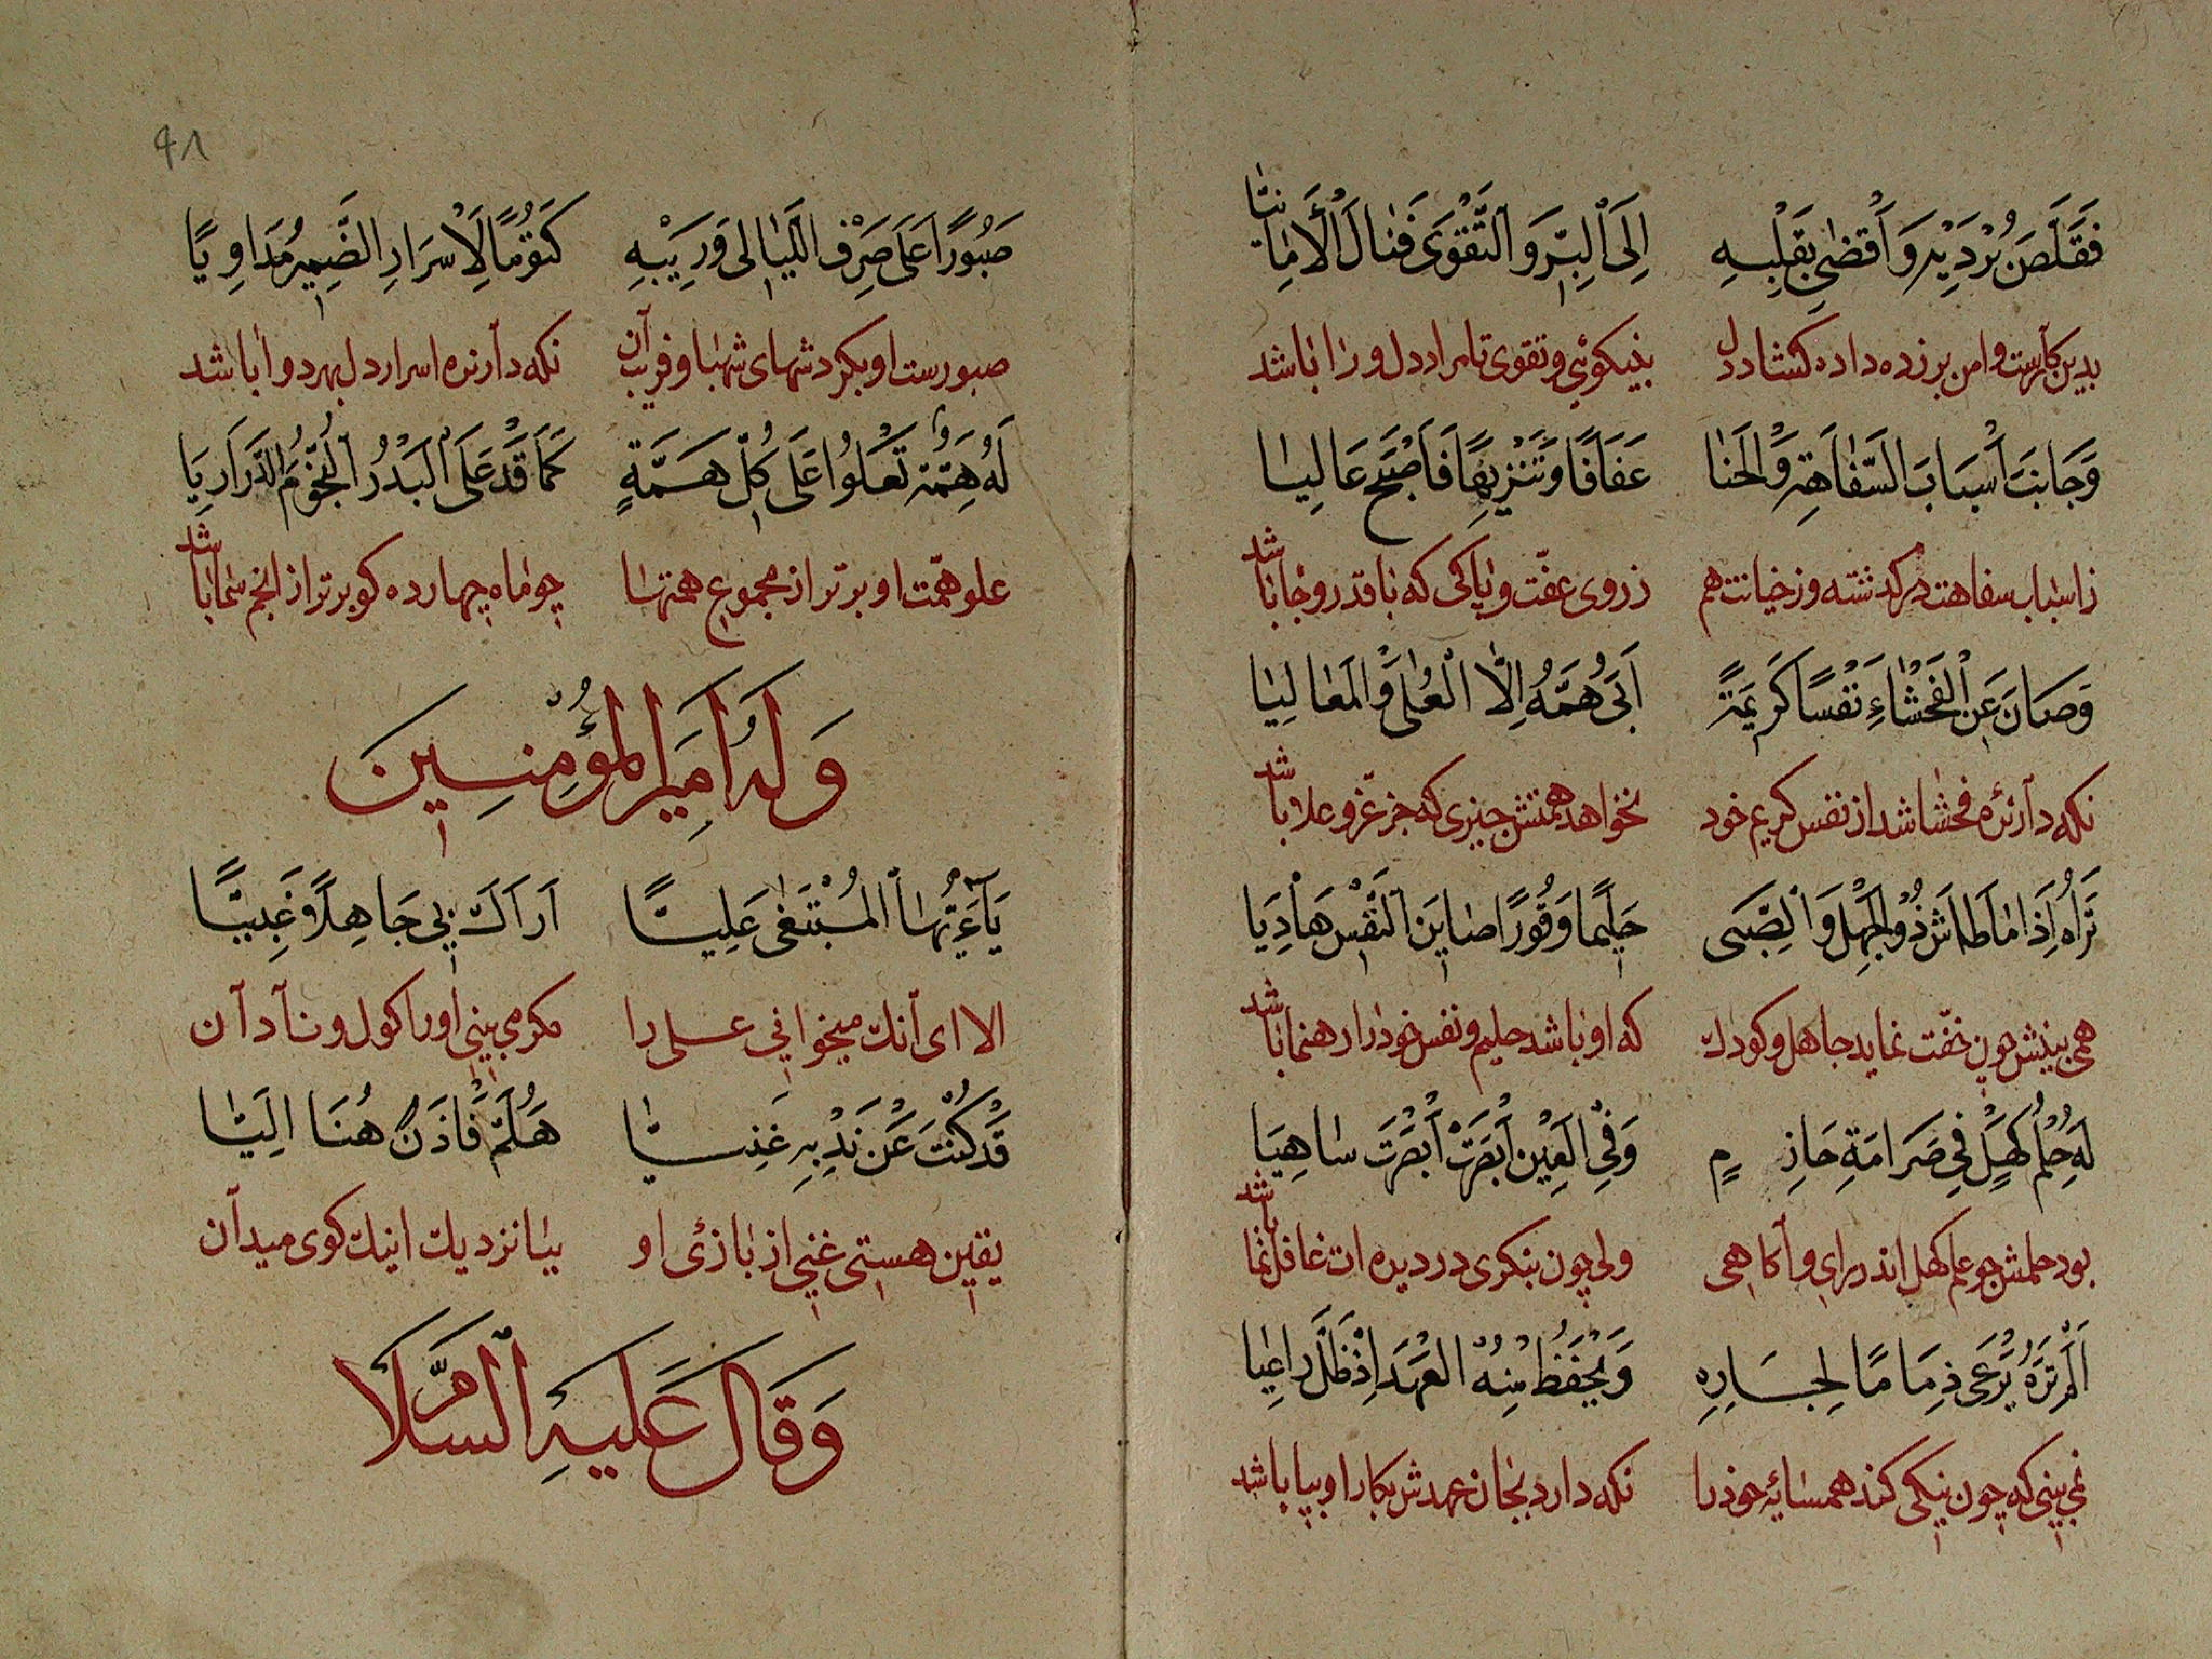 فَقَلَّصَ بُرْدَيْهِ وَاَفْضٰى بِقَلْبِهِ اِلَى الْبِرِّ وَالتَّقْوَى فَنَالَ الْأَمَانِيَا
بدین کارست دامن برزده داده کشاد دل بنیکوئی و تقوی تا مراد دل ورا باشد
وَجَانَبَ اَسْبَابَ السَّفَاهَةِ وَالْخَنَا عَفَافًا وَتَنْزِيهًا فَاَصْبَحَ عَالِيَا
ز اسباب سفاهت در کذشته وز خیانت هم ز روی عفت و پاکی که با قدر و جا باشد
وَصَانَ عَنِ الْفَحْشَاءِ نَفْسًا كَرِيمَةً اَبَى هَمُّهُ اِلَّا الْعُلٰى وَالْمَعَالِيَا
نکه دارنده فحشا شد از نفس کریم خود نخواهد همتش جیزی که جز عز و علا باشد
تَرَاهُ اِذَا مَا طَاشَ ذُو الْجَهْلِ وَالصِّبَى حَلِيمًا وَقُورًا صَايِنَ النَّفْسِ هَادِيَا
همی بینش چون خفت نماید جاهل و کودك که او باشد حلیم و نفس خود را رهنما باشد
لَهُ حِلْمُ كَهْلٍ فِي صَرَامَةِ حَازِمٍ وَفِي الْعَيْنِ اَبْصَرْتَ اَبْصَرْتَ سَاهِيَا
بود حلمش جو علم کهل اندر رای و آکاهی ولی چون بنکری در دیده ات غافل نما باشد
اَلَمْ تَرَهُ يَرْعَى ذِمَامًا لِجَارِهِ وَيَحْفَظُ مِنْهُ الْعَهْدَ اِذْ ظَلَّ رَاعِيَا
نمی بینی که چون نیکی کند همسایه خود را نکه دارد بجان عهدش بکار او بپا باشد
٤١
صَبُورًا عَلَى صَرْفِ اللَّيَالِى وَرَيْبِهِ كَتُومًا لِاَسْرَارِ الضَّمِيرِ مُدَاوِيًا
صبورست او بکردشهای شبها و فریب آن نکه دارنده اسرار دل بهر دوا باشد
لَهُ هِمَّةٌ تَعْلُوا عَلَى كُلِّ هِمَّةٍ كَمَا قَدْ عَلَى الْبَدْرُ النُّجُومَ الدَّرَارِيَا
علو همت او برتر از مجموع همتها چو ماه چهارده کو برتر از انجم سما باشد
وَلَهُ اَمِيرِ الْمُؤْمِنِينَ
يَآ اَيُّهَا الْمُبْتَغٰى عَلِيًّا اَرَاكَ بِي جَاهِلًا وَغَبِيًّا
الا ای آنك میخوانی علی را مکر می بینی او را کول و نادان
قَدْ كُنْتَ عَنْ نَدْبِهِ غَنِيًّا هَلُمَّ فَاذْنُ هُنَا اِلَيَّا
یقین هستی غنی از بازئ او بیا نزدیك اینك کوی میدان
وَقَالَ عَلَيْهِ السَّلَامُ